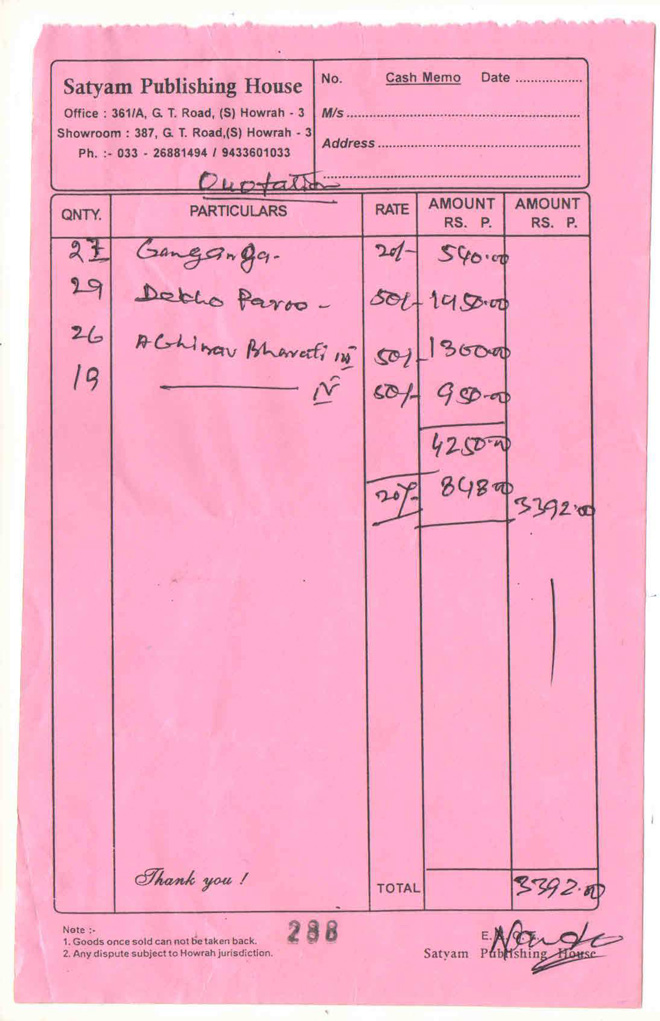 Satyam Publishing House
Office : 361/A, G. T. Road, (S) Howrah - 3
Showroom : 387, G. T. Road,(S) Howrah - 3
Ph. :- 033 - 26881494 / 9433601033
No. Cash Memo Date
M/s
Address
Quotation
QNTY. PARTICULARS RATE AMOUNT RS. P. AMOUNT RS. P.
27 Ganganga- 20/- 540.00
29 Dekho Paroo - 50/- 1450.00
26 Abhinav Bharati III 50/- 1300.00
19 IV 50/- 950.00
4250.00
20% 848.00 3392.00
Thank you !
TOTAL 3392.00
Note :-
1. Goods once sold can not be taken back.
2. Any dispute subject to Howrah jurisdiction.
288
Satyam Publishing House